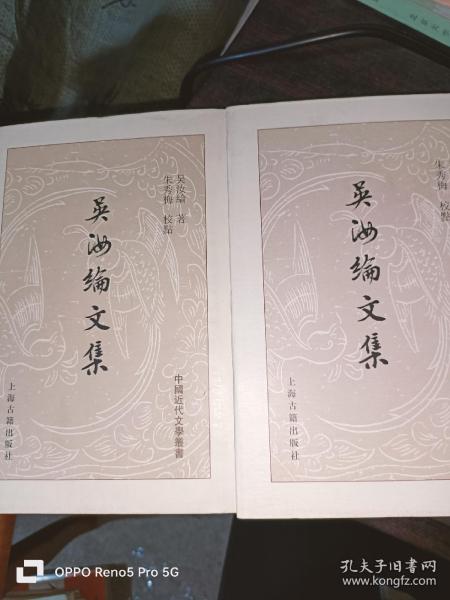 吳汝綸 著
朱秀梅 校點
吳汝綸文集
中國近代文學叢書
上海古籍出版社
朱秀梅 校點
吳汝綸文集
上海古籍出版社
OPPO Reno5 Pro 5G
孔夫子旧书网
www.kongfz.com